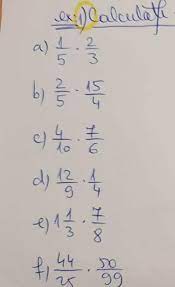 ex.1) Calculați
a) 1/5 · 2/3
b) 2/5 · 15/4
c) 4/10 · 7/6
d) 12/9 · 1/4
e) 1 1/3 · 7/8
f) 44/25 · 50/99